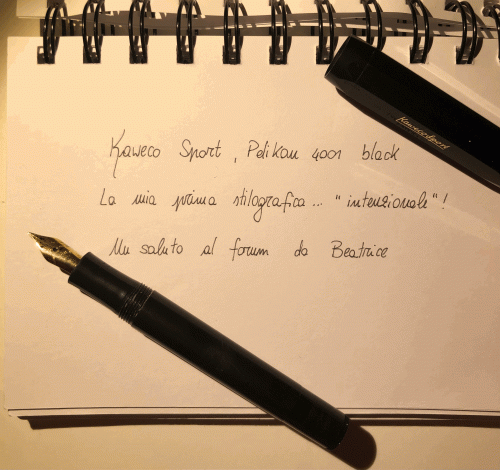 Kaweco Sport, Pelikan 4001 black
La mia prima stilografica... "intenzionale"!
Un saluto al forum da Beatrice
Kaweco Sport